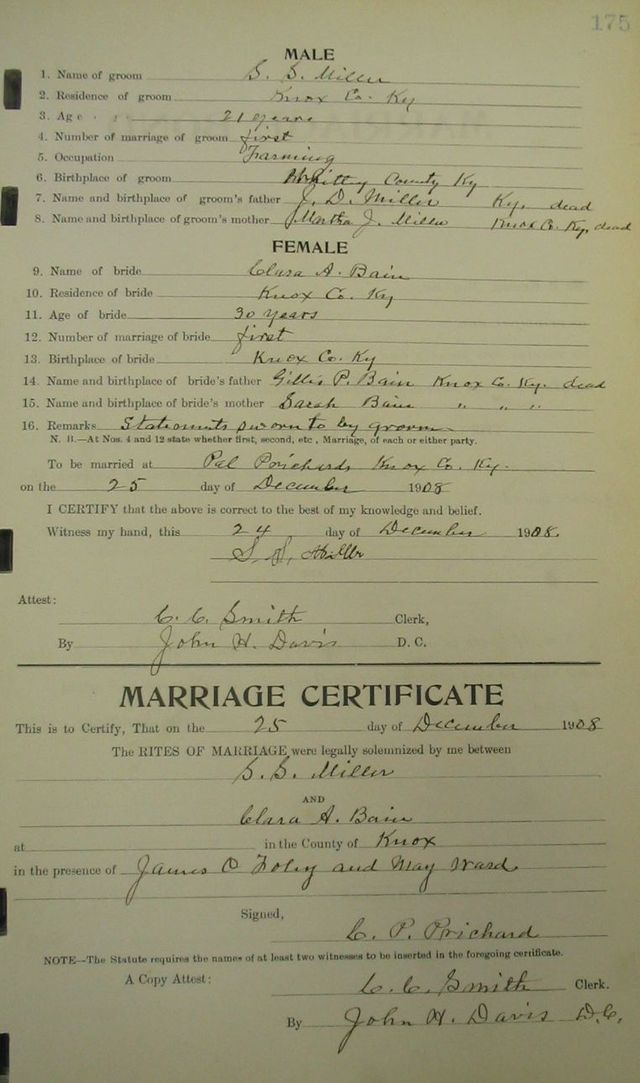 175
MALE
1. Name of groom S. S. Miller
2. Residence of groom Knox Co. Ky
3. Age 21 years
4. Number of marriage of groom first
5. Occupation Farming
6. Birthplace of groom Whitley County Ky
7. Name and birthplace of groom's father J. D. Miller Ky. dead
8. Name and birthplace of groom's mother Martha J. Miller Knox Co. Ky, dead
FEMALE
9. Name of bride Clara A. Bain
10. Residence of bride Knox Co. Ky
11. Age of bride 30 years
12. Number of marriage of bride first
13. Birthplace of bride Knox Co. Ky
14. Name and birthplace of bride's father Gillis P. Bain Knox Co. Ky. dead
15. Name and birthplace of bride's mother Sarah Bain " " "
16. Remarks Statements sworn to by groom
N. B.—At Nos. 4 and 12 state whether first, second, etc , Marriage, of each or either party.
To be married at Pal Prichards Knox Co. Ky.
on the 25 day of December 1908
I CERTIFY that the above is correct to the best of my knowledge and belief.
Witness my hand, this 24 day of December 1908.
S. S. Miller
Attest:
C. C. Smith Clerk,
By John H. Davis D. C.
MARRIAGE CERTIFICATE
This is to Certify, That on the 25 day of December 1908
The RITES OF MARRIAGE were legally solemnized by me between
S. S. Miller
AND
Clara A. Bain
at in the County of Knox
in the presence of James O Foley and May Ward
Signed,
C. P. Prichard
NOTE—The Statute requires the names of at least two witnesses to be inserted in the foregoing certificate.
A Copy Attest: C. C. Smith Clerk.
By John H. Davis D.C.